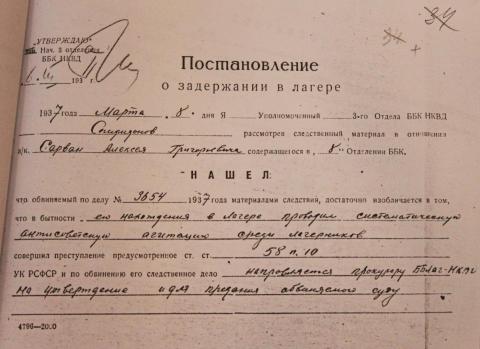 34
34
"УТВЕРЖДАЮ"
Нач. 3 отделения
ББК НКВД
8. III 193
Постановление
о задержании в лагере
1937 года Марта 8 дня Я Уполномоченный 3-го Отдела ББК НКВД
Спиридонов рассмотрев следственный материал в отношении
з/к. Сарван Алексея Григорьевича содержащегося в 8 Отделении ББК.
НАШЕЛ:
что обвиняемый по делу № 3654 1937 года материалами следствия, достаточно изобличается в том,
что в бытность его нахождения в лагере проводил систематическую
антисоветскую агитацию среди лагерников
совершил преступление предусмотренное ст. ст. 58 п. 10
УК РСФСР и по обвинению его следственное дело направляется прокурору ББЛАГ-НКВД
на утверждение и для предания обвиняемого суду
4796—20.0